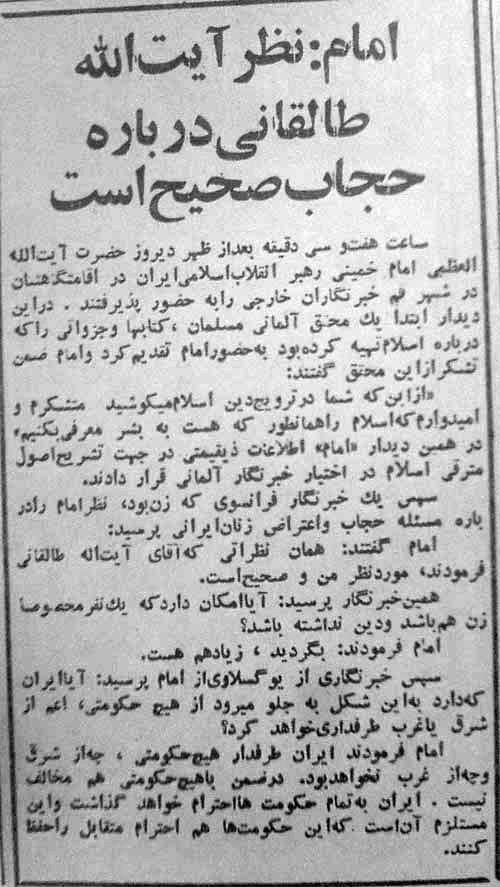 امام: نظر آیت‌الله
طالقانی درباره
حجاب صحیح است
ساعت هفت‌و سی دقیقه بعداز ظهر دیروز حضرت آیت‌الله
العظمی امام خمینی رهبر انقلاب‌اسلامی‌ایران در اقامتگاهشان
در شهر قم خبرنگاران خارجی رابه حضور پذیرفتند . دراین
دیدار ابتدا یك محقق آلمانی مسلمان ، کتابها وجزواتی راکه
درباره اسلام‌تهیه کرده‌بود به‌حضورامام تقدیم‌کرد وامام ضمن
تشکرازاین محقق گفتند:
«ازاین‌که شما درترویج‌دین اسلام‌میکوشید متشکرم و
امیدوارم‌که‌اسلام راهمانطور که هست به بشر معرفی‌بکنیم»
در همین دیدار «امام» اطلاعات ذیقیمتی در جهت تشریح‌اصول
مترقی اسلام در اختیار خبرنگار آلمانی قرار دادند.
سپس یك خبرنگار فرانسوی که زن‌بود، نظرامام رادر
باره مسئله حجاب واعتراض زنان‌ایرانی پرسید:
امام گفتند: همان نظراتی که‌آقای آیت‌اله طالقانی
فرمودند، موردنظر من و صحیح‌است.
همین‌خبرنگار پرسید: آیاامکان داردکه یك‌نفرمخصوصا
زن هم‌باشد ودین نداشته باشد؟
امام فرمودند: بگردید ، زیادهم هست.
سپس خبرنگاری از یوگسلاوی‌از امام پرسید: آیاایران
که‌دارد به‌این شکل به جلو میرود از هیچ حکومتی، اعم از
شرق یاغرب طرفداری‌خواهد کرد؟
امام فرمودند ایران طرفدار هیچ‌حکومتی ، چه‌از شرق
وچه‌از غرب نخواهدبود. درضمن باهیچ‌حکومتی هم مخالف
نیست . ایران به‌تمام حکومت هااحترام خواهد گذاشت واین
مستلزم آن‌است که‌این حکومت‌ها هم احترام متقابل راحفظ
کنند.